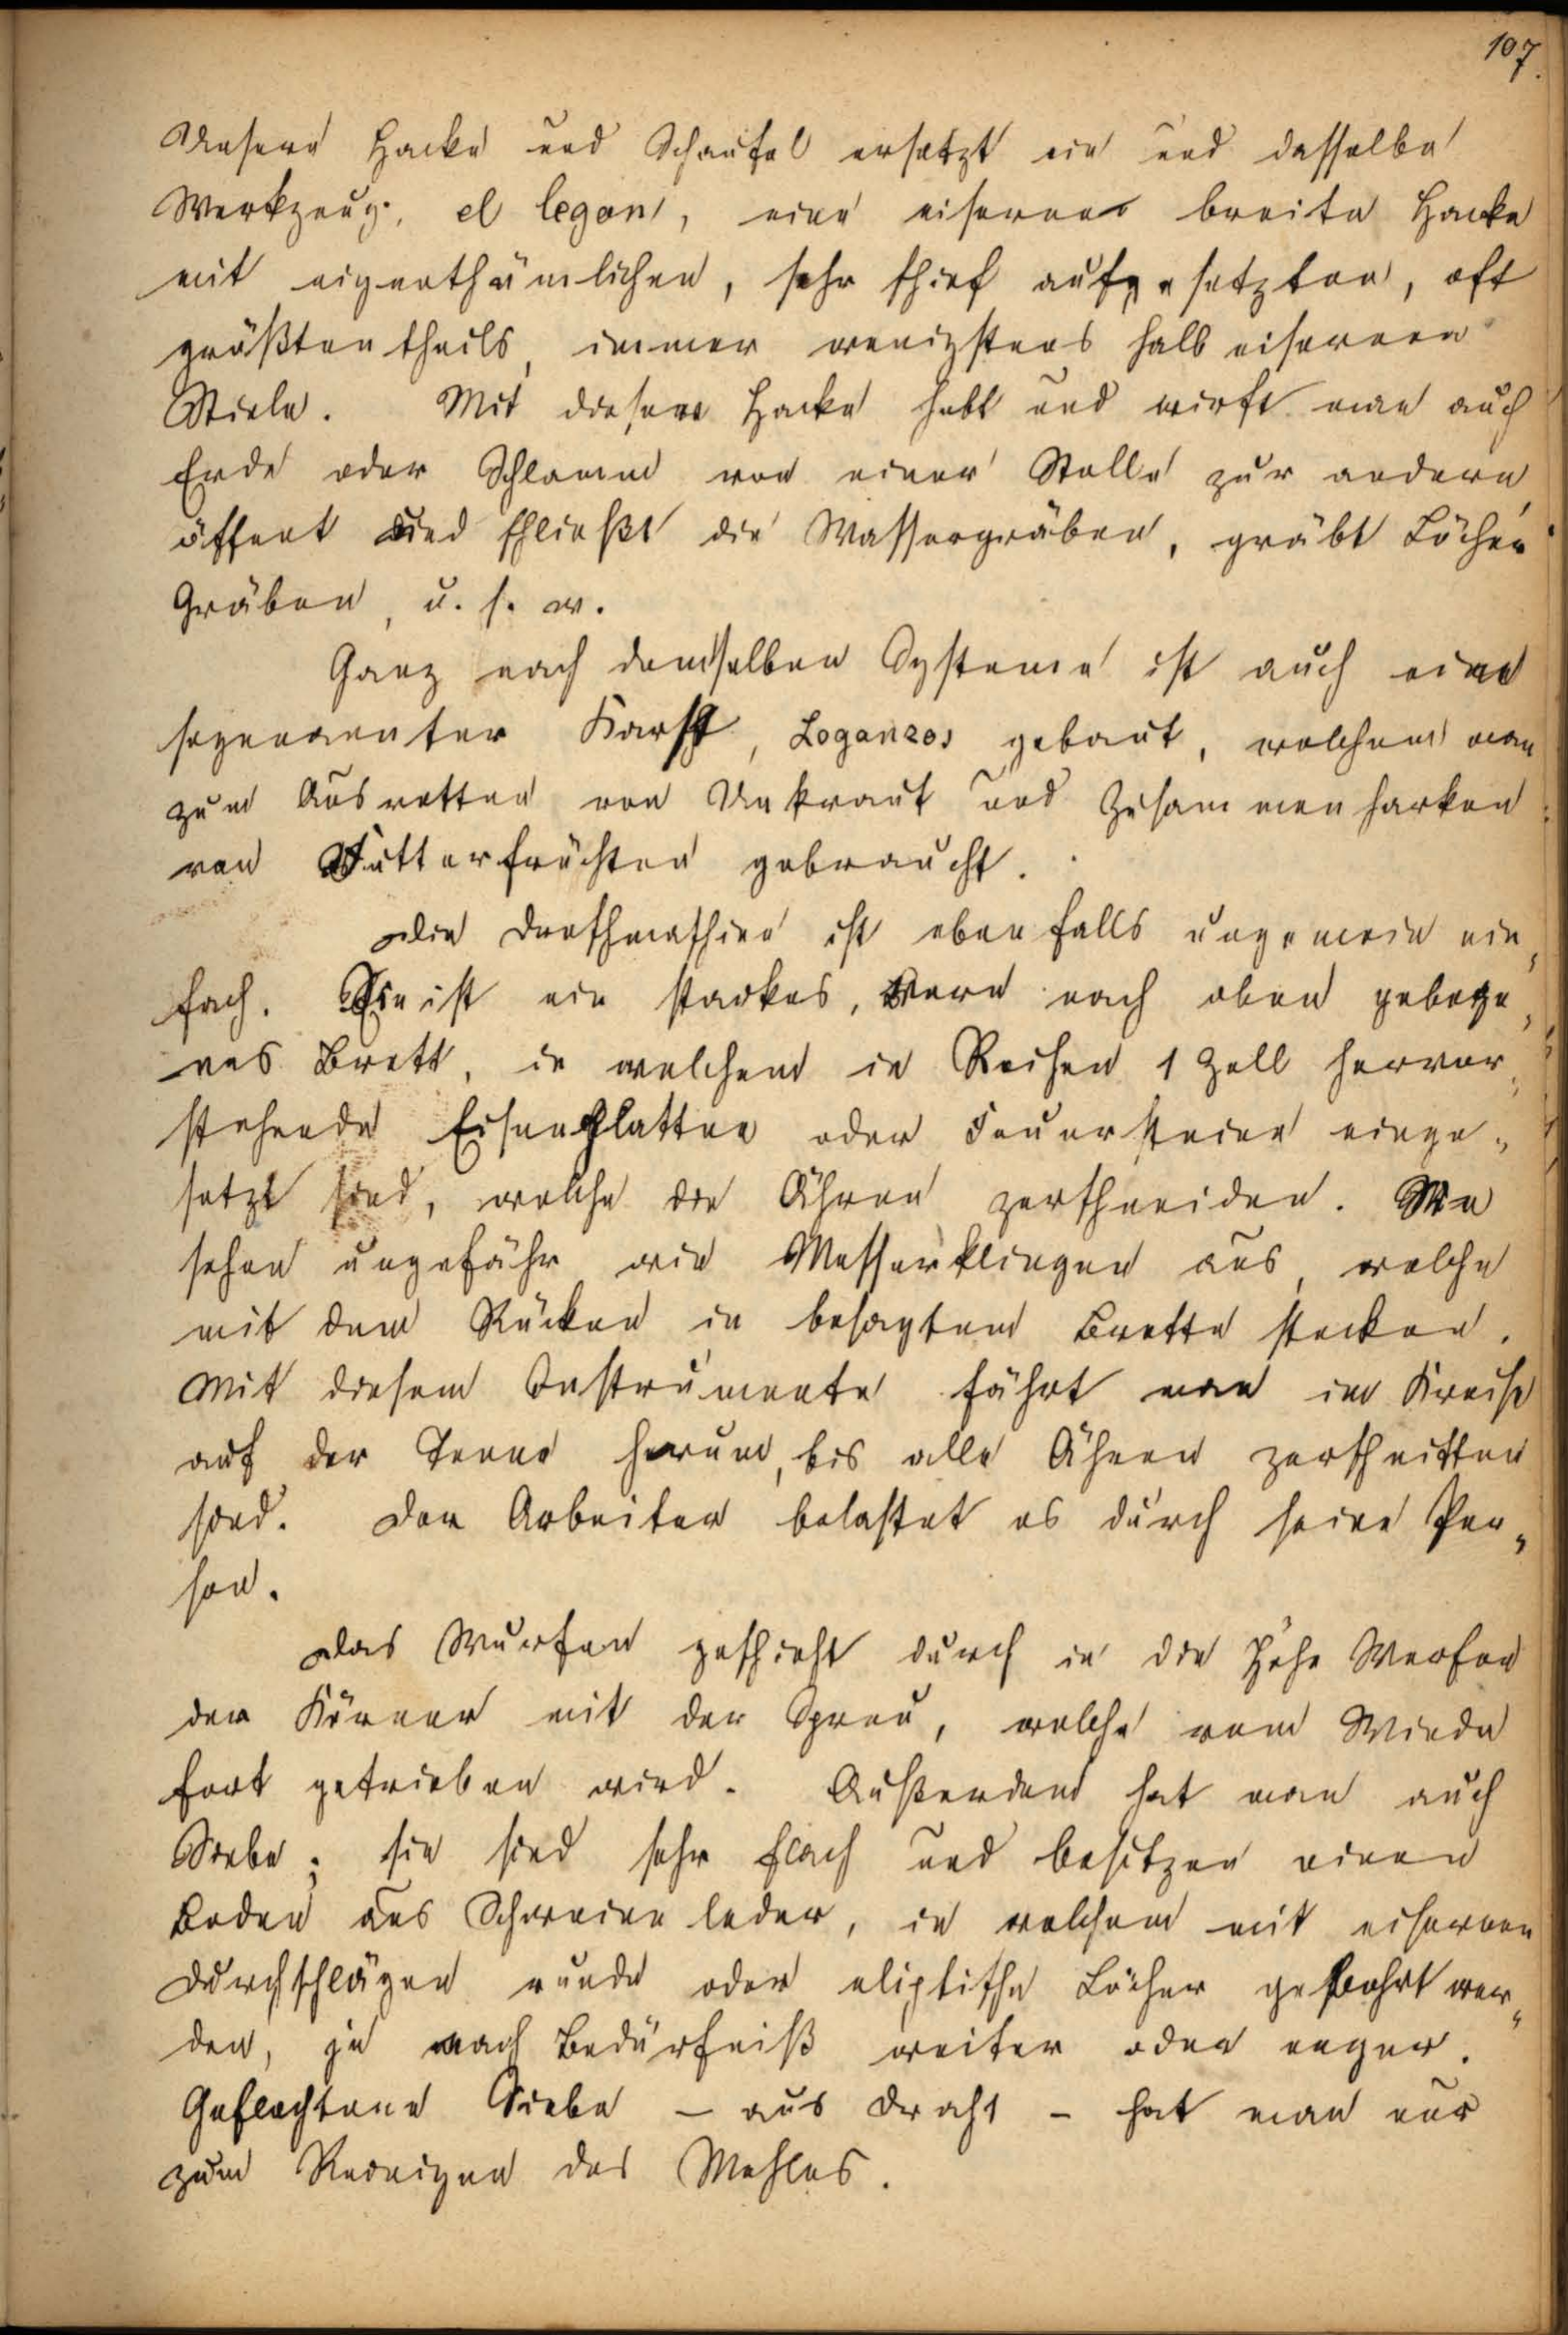 107.
Unsere Hacke und Schaufel ersetzt ein und dasselbe
Werkzeug, el legon, eine eiserne breite Hacke
mit eigenthümlichen, sehr schief aufgesetzten, oft
größtentheils, immer wenigstens halb eisernen
Stiele. Mit dieser Hacke hebt und wirft man auch
Erde oder Schlamm von einer Stelle zur andern,
öffnet und schließt die Wassergräben, gräbt Löcher
Gräben, u. s. w.
Ganz nach demselben Systeme ist auch eine
sogenannter Karst, gebaut, welchen man
zum Ausrotten von Unkraut und Zusammenharken
von Futterfrüchten gebraucht.
Die Dreschmaschine ist ebenfalls ungemein ein„
fach. Sie ist ein starkes, vorn nach oben geboge„
nes Brett, in welchem in Reihen 1 Zoll hervor„
stehende Eisenplatten oder Feuersteine einge„
setzt sind, welche die Ähren zerschneiden. Sie
sehen ungefähr wie Messerklingen aus, welche
mit dem Rücken in besagtem Brette stecken.
Mit diesem Instrumente fährt man im Kreise
auf der Tenne herum, bis alle Ähren zerschnitten
sind. Der Arbeiter belastet es durch seine Per„
son.
Das Wurfen geschieht durch in die Höhe Werfen
der Körner mit der Spreu, welche vom Winde
fort getrieben wird. Außerdem hat man auch
Siebe; sie sind sehr flach und besitzen einen
Boden aus Schweineleder, in welchem mit eisernen
Durchschlägen runde oder eliptische Löcher gebohrt wer„
den, je nach Bedürfniß weiter oder enger.
Geflochtene Siebe – aus Draht – hat man nur
zum Reinigen des Mehles.